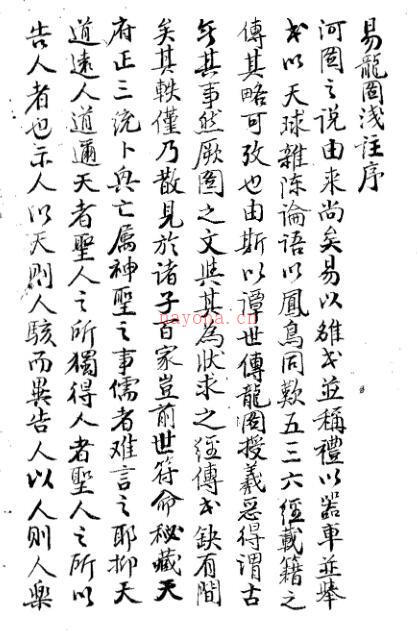 易龍圖淺註序
河圖之說由來尚矣易以雒书並稱禮以器車並舉
书以天球雜陳論語以鳳鳥同歎五三六經載籍之
傳其略可攷也由斯以譚世傳龍圖授羲惡得謂古
无其事然厥圖之文與其為狀求之經傳书缺有間
矣其軼僅乃散見於诸子百家豈前世符命秘藏天
府正三統卜興亡属神聖之事儒者难言之耶抑天
道遠人道邇天者聖人之所獨得人者聖人之所以
告人者也示人以天則人駭而異告人以人則人樂
nayona.cn